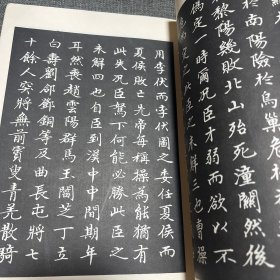 於南陽險於烏巢
黎陽幾敗北山殆死潼關然後
偽定一時爾況臣才弱而欲以不
未解三也曹操
用李伏而李伏圖之委任夏侯而
夏侯敗亡先帝每稱操為能猶有
此失況臣駑下何能必勝此臣之
未解四也自臣到漢中中間期年
耳然喪趙雲陽群馬玉閻芝丁立
白壽劉郃鄧銅等及曲長屯將七
十餘人突將無前賨叟青羌散騎